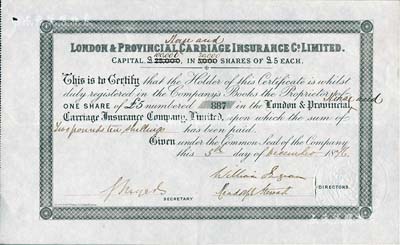 Horse and
LONDON & PROVINCIAL CARRIAGE INSURANCE Co. LIMITED.
CAPITAL £ 25,000, IN 5,000 SHARES OF £5 EACH.
This is to Certify that the Holder of this Certificate is whilst
duly registered in the Company's Books the Proprietor of
ONE SHARE of £5 numbered 887 in the London & Provincial
Horse and
Carriage Insurance Company, Limited, upon which the sum of
Two pounds ten shillings has been paid.
Given under the Common Seal of the Company
this 5th day of December 187
William
SECRETARY
DIRECTORS.